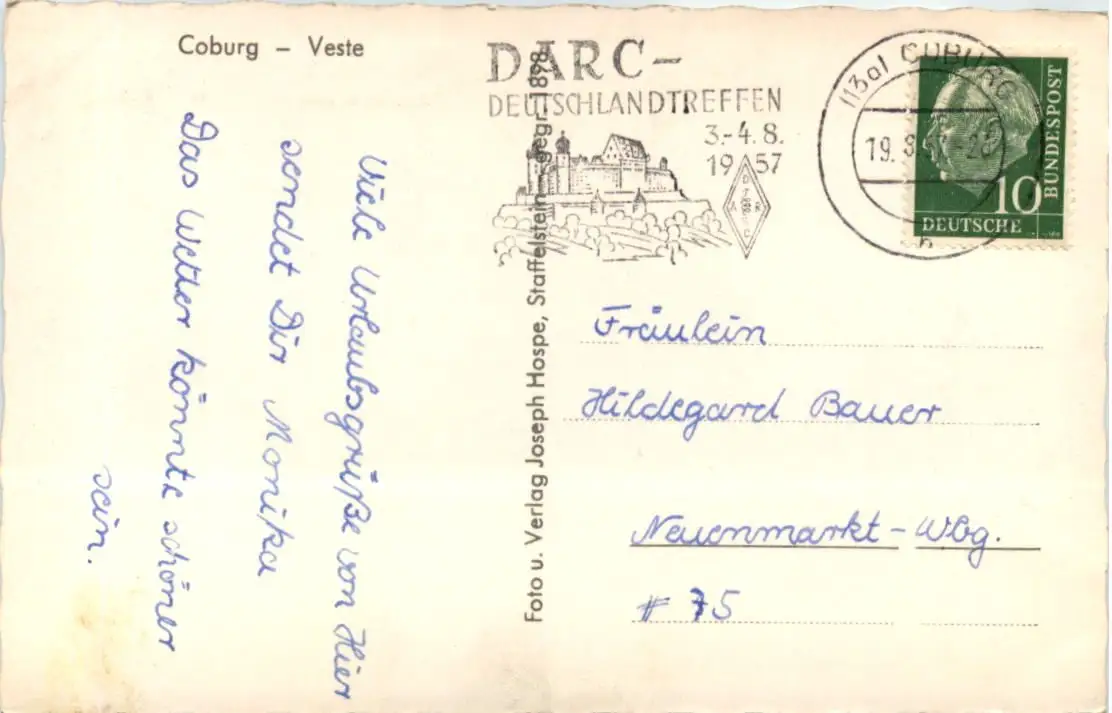 Coburg – Veste
DARC–
DEUTSCHLANDTREFFEN
3.-4.8.
1957
DARC
(13a) COBURG
19.8.
b
10
DEUTSCHE
BUNDESPOST
Foto u. Verlag Joseph Hospe, Staffelstein, gegr. 1898
Viele Urlaubsgrüße von Hier
sendet Dir Monika
Das Wetter könnte schöner
sein.
Fräulein
Hildegard Bauer
Neuenmarkt-Wbg.
# 75